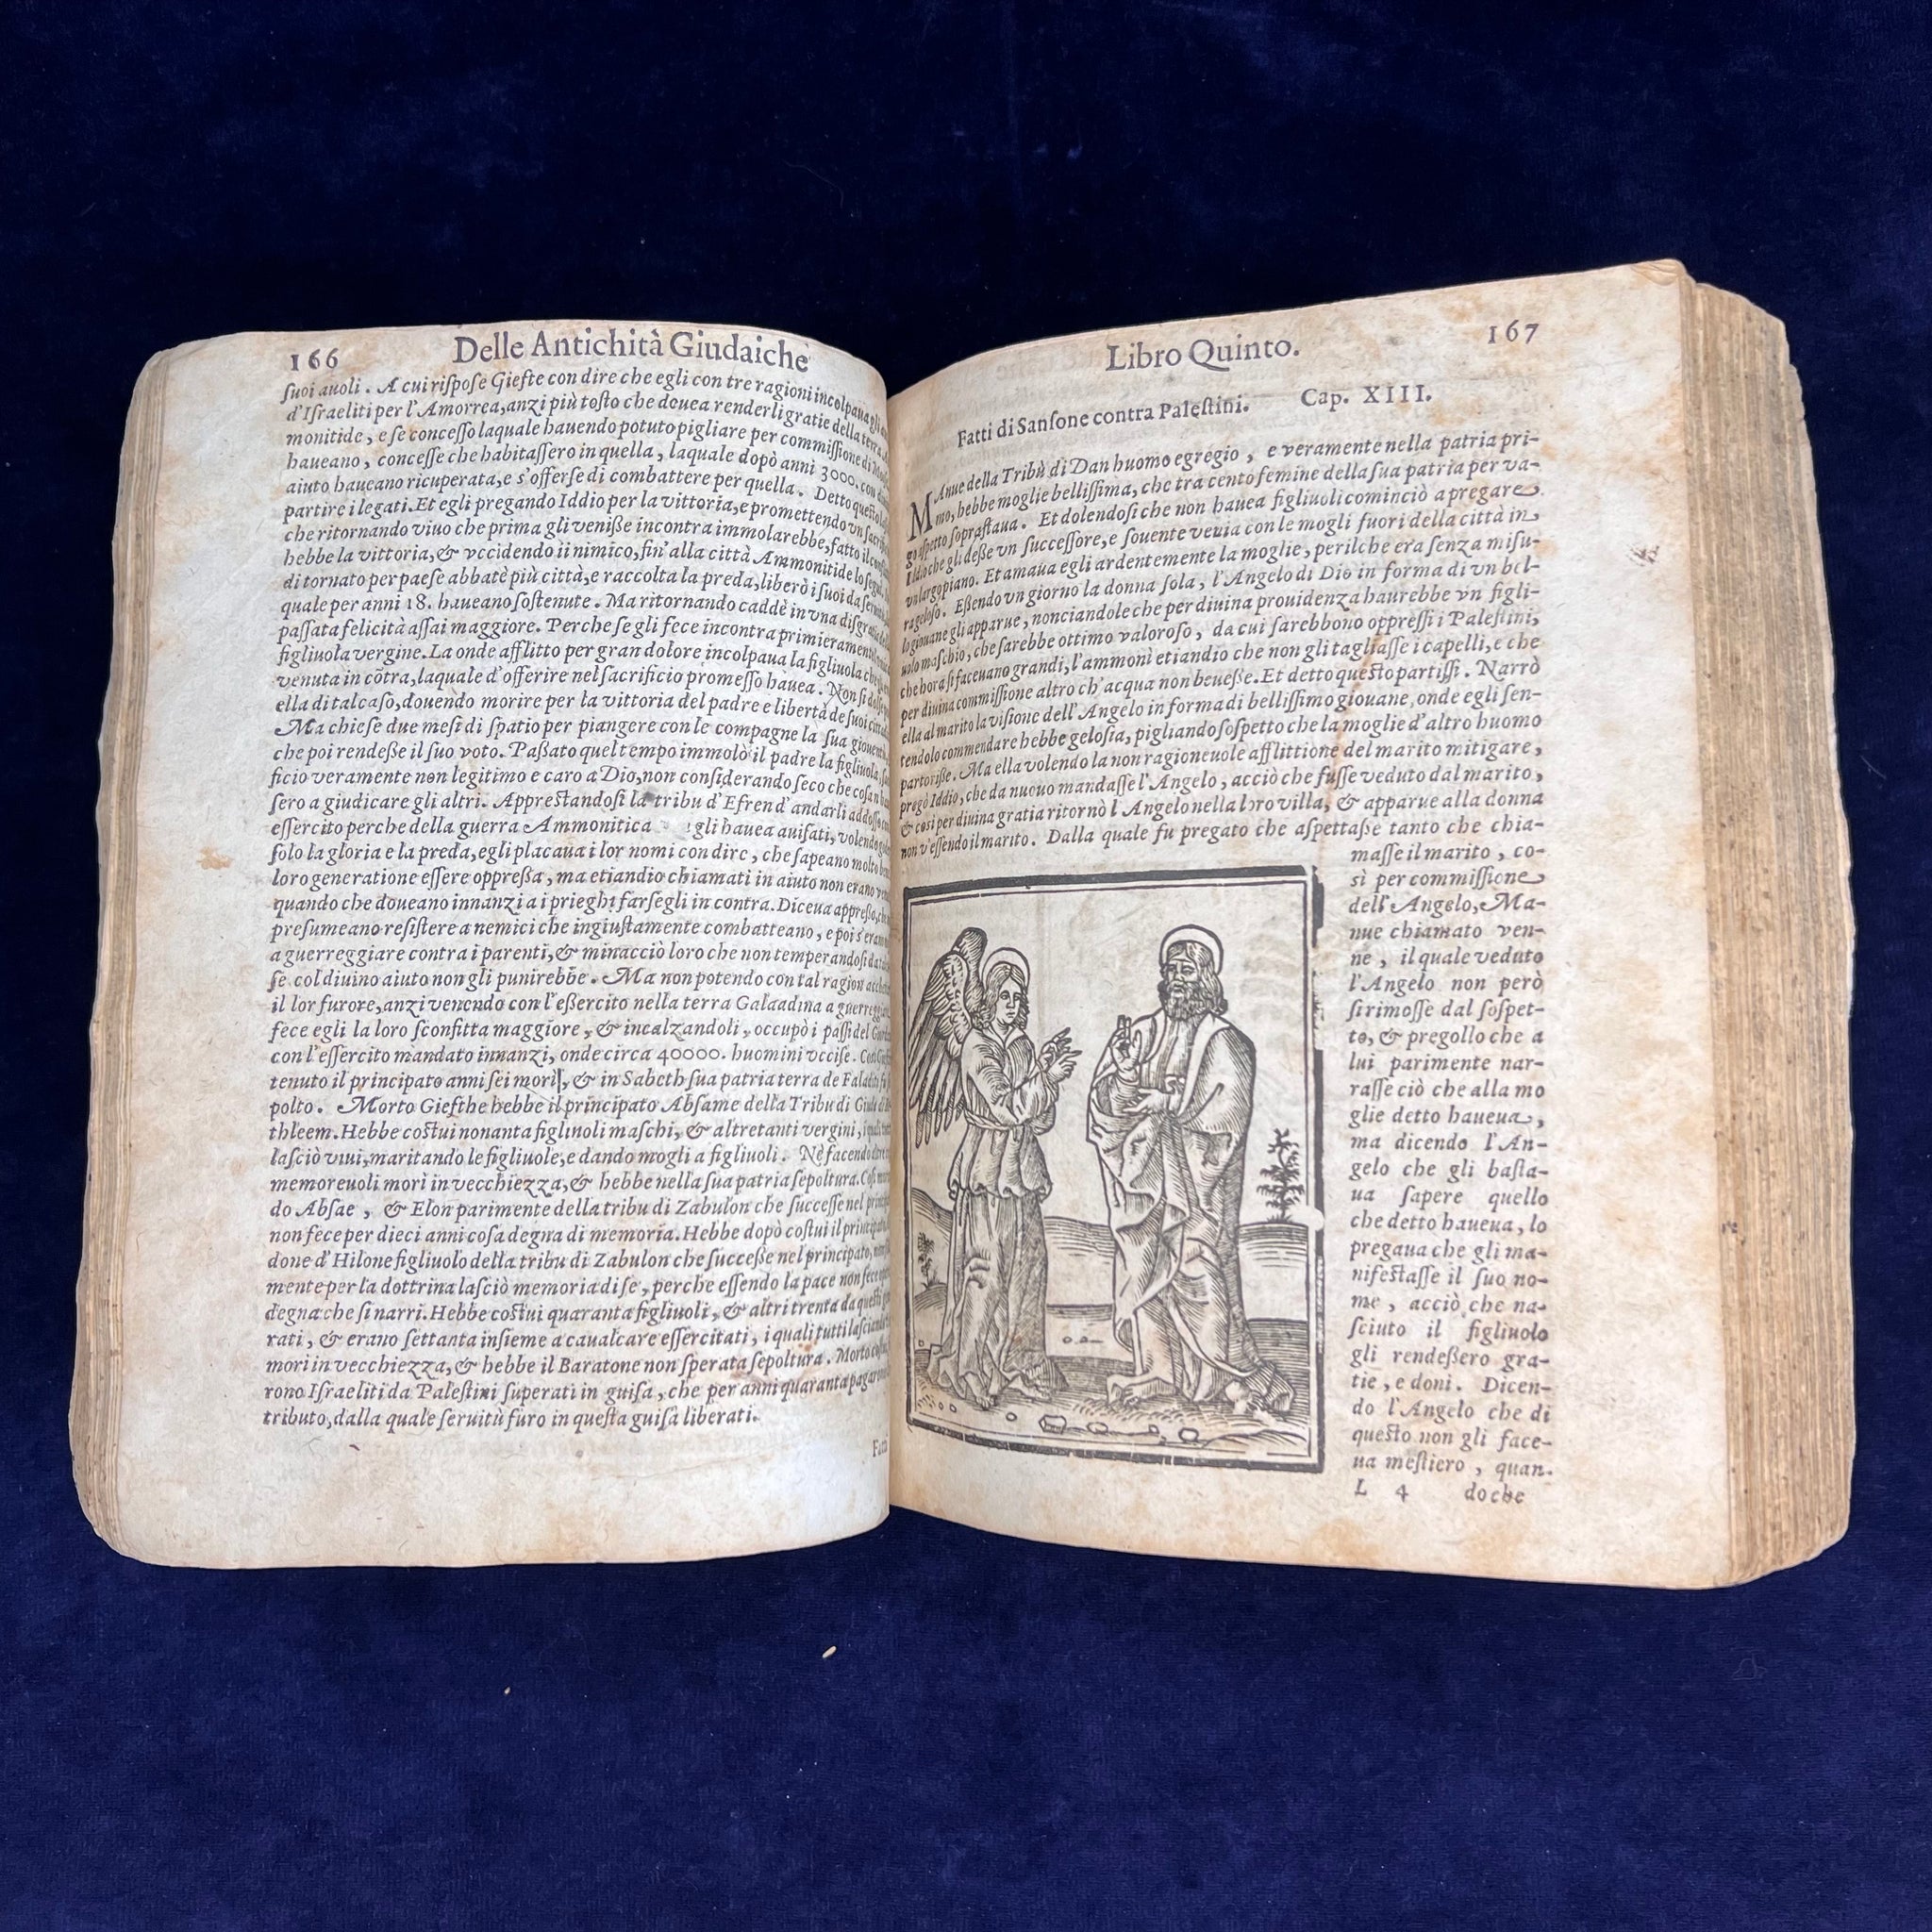 166 Delle Antichità Giudaiche
ſuoi auoli. A cui riſpoſe Giefte con dire che egli con tre ragioni incolpaua gli
d'Iſraeliti per l'Amorrea, anzi più toſto che douea renderli gratie della terra
monitide, e ſe conceſſo laquale hauendo potuto pigliare per commiſſione di
haueano, conceſſe che habitaſſero in quella, laquale dopò anni 3000. con
aiuto haueano ricuperata, e s'offerſe di combattere per quella. Detto queſto
partire i legati. Et egli pregando Iddio per la vittoria, e promettendo vn
che ritornando viuo che prima gli veniſſe incontra immolarebbe, fatto il
hebbe la vittoria, & vccidendo ii nimico, fin' alla città Ammonitide lo
di tornato per paeſe abbatè più città, e raccolta la preda, liberò i ſuoi da
quale per anni 18. haueano ſoſtenute. Ma ritornando caddè in vna diſgratia
paſſata felicità aſſai maggiore. Perche ſe gli fece incontra primieramente
figliuola vergine. La onde afflitto per gran dolore incolpaua la figliuola
venuta in cōtra, laquale d'offerire nel ſacrificio promeſſo hauea. Non ſi
ella di tal caſo, douendo morire per la vittoria del padre e libertà de ſuoi
Ma chieſe due meſi di ſpatio per piangere con le compagne la ſua
che poi rendeſſe il ſuo voto. Paſſato quel tempo immolò il padre la figliuola,
ficio veramente non legitimo e caro a Dio, non conſiderando ſeco che coſa
ſero a giudicare gli altri. Appreſtandoſi la tribu d'Efren d'andarli addoſſo
eſſercito perche della guerra Ammonitica gli hauea auiſati, volendo
ſolo la gloria e la preda, egli placaua i lor nomi con dirc, che ſapeano molto
loro generatione eſſere oppreſſa, ma etiandio chiamati in aiuto non erano
quando che doueano innanzi a i prieghi farſegli in contra. Diceua appreſſo,
preſumeano reſiſtere a nemici che ingiuſtamente combatteano, e poi s'eran
a guerreggiare contra i parenti, & minacciò loro che non temperandoſi da
ſe col diuino aiuto non gli punirebbe. Ma non potendo con tal ragion
il lor furore, anzi venendo con l'eſſercito nella terra Galaadina a
fece egli la loro ſconfitta maggiore, & incalzandoli, occupò i paſſi del
con l'eſſercito mandato innanzi, onde circa 40000. huomini vcciſe.
tenuto il principato anni ſei morì, & in Sabeth ſua patria terra de
polto. Morto Giefthe hebbe il principato Abſame della Tribu di
thleem. Hebbe coſtui nonanta figliuoli maſchi, & altretanti vergini,
laſciò viui, maritando le figliuole, e dando mogli a figliuoli. Nè facendo
memoreuoli morì in vecchiezza, & hebbe nella ſua patria ſepoltura.
do Abſae, & Elon parimente della tribu di Zabulon che ſucceſſe nel
non fece per dieci anni coſa degna di memoria. Hebbe dopò coſtui il
done d'Hilone figliuolo della tribu di Zabulon che ſucceſſe nel principato,
mente per la dottrina laſciò memoria di ſe, perche eſſendo la pace non fece
degna che ſi narri. Hebbe coſtui quaranta figliuoli, & altri trenta da queſti
rati, & erano ſettanta inſieme a caualcare eſſercitati, i quali tutti
morì in vecchiezza, & hebbe il Baratone non ſperata ſepoltura. Morto
rono Iſraeliti da Paleſtini ſuperati in guiſa, che per anni quaranta
tributo, dalla quale ſeruitù furo in queſta guiſa liberati.
Libro Quinto. 167
Fatti di Sanſone contra Paleſtini. Cap. XIII.
MAnue della Tribù di Dan huomo egregio, e veramente nella patria pri-
mo, hebbe moglie belliſſima, che tra cento femine della ſua patria per va-
go aſpetto ſopraſtaua. Et dolendoſi che non hauea figliuoli cominciò a pregare
Iddio che gli deſſe vn ſucceſſore, e ſouente venia con le mogli fuori della città in
vn largo piano. Et amaua egli ardentemente la moglie, perilche era ſenza miſu-
ra geloſo. Eſſendo vn giorno la donna ſola, l'Angelo di Dio in forma di vn bel-
lo giouane gli apparue, nonciandole che per diuina prouidenza haurebbe vn figli-
uolo maſchio, che ſarebbe ottimo valoroſo, da cui ſarebbono oppreſſi i Paleſtini,
che hora ſi faceuano grandi, l'ammonì etiandio che non gli tagliaſſe i capelli, e che
per diuina commiſſione altro ch'acqua non beueſſe. Et detto queſto partiſſi. Narrò
ella al marito la viſione dell'Angelo in forma di belliſſimo giouane, onde egli ſen-
tendolo commendare hebbe geloſia, pigliando ſoſpetto che la moglie d'altro huomo
partoriſſe. Ma ella volendo la non ragioneuole afflittione del marito mitigare,
pregò Iddio, che da nuouo mandaſſe l'Angelo, acciò che fuſſe veduto dal marito,
& coſi per diuina gratia ritornò l'Angelo nella loro villa, & apparue alla donna
non v'eſſendo il marito. Dalla quale fu pregato che aſpettaſſe tanto che chia-
maſſe il marito, co-
sì per commiſſione
dell'Angelo, Ma-
nue chiamato ven-
ne, il quale veduto
l'Angelo non però
ſi rimoſſe dal ſoſpet-
to, & pregollo che a
lui parimente nar-
raſſe ciò che alla mo
glie detto haueua,
ma dicendo l'An-
gelo che gli baſta-
ua ſapere quello
che detto haueua, lo
pregaua che gli ma-
nifeſtaſſe il ſuo no-
me, acciò che na-
ſciuto il figliuolo
gli rendeſſero gra-
tie, e doni. Dicen-
do l'Angelo che di
queſto non gli face-
ua meſtiero, quan-
L 4 doche